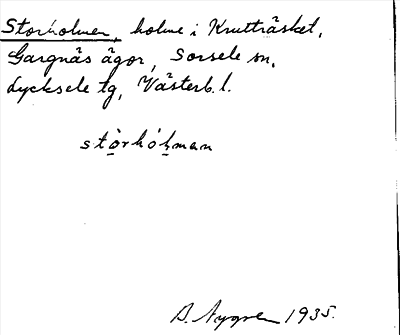 Storholmen, holme i Kruttråsket,
Gargnäs ägor, Sorsele sn,
Lycksele tg, Västerb. l.
stòrhólman
1935.